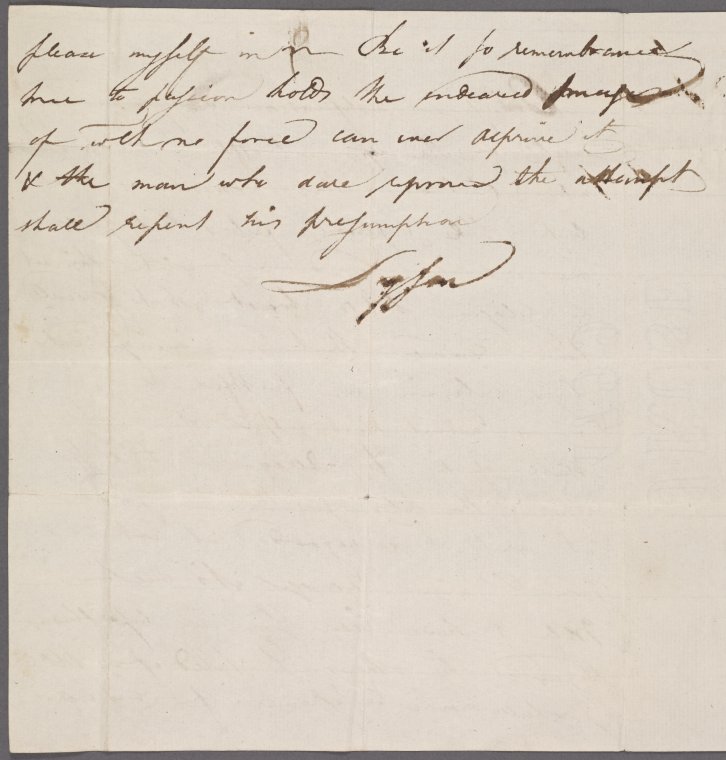 please myself in Be it so remembrance
true to passion holds the endeared Image
of wch no force can ever deprive it
& the man who dare the attempt
shall repent his presumption